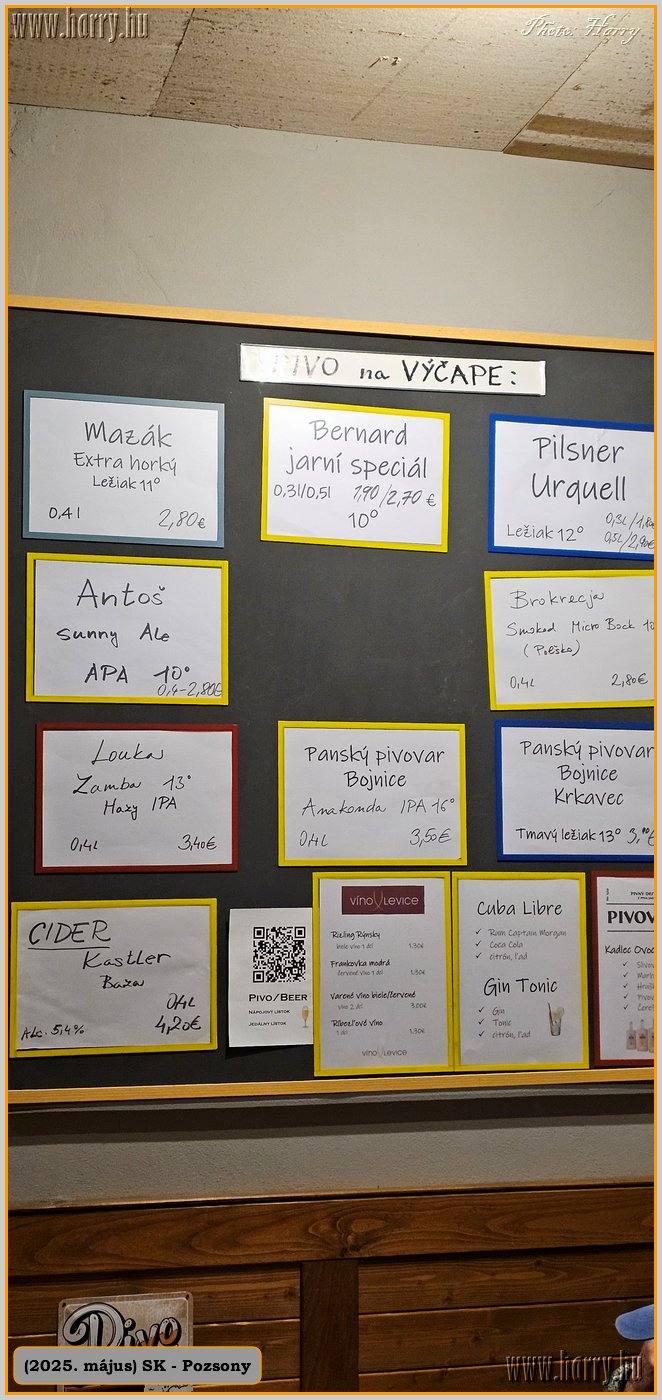 www.harry.hu
Photo: Harry
PIVO na VÝČAPE:
Mazák
Extra horký
Ležiak 11°
0,4l
2,80€
Bernard
jarní speciál
0,3l/0,5l 1,90/2,70 €
10°
Pilsner
Urquell
Ležiak 12°
0,3L/1,80
0,5L/2,90€
Antoš
Sunny Ale
APA 10°
0,4-2,80€
Brokreacja
Smoked Micro Bock 10
(Poľsko)
0,4L
2,80€
Louka
Zamba 13°
Hazy IPA
0,4L
3,40€
Panský pivovar
Bojnice
Anakonda IPA 16°
0,4L
3,50€
Panský pivovar
Bojnice
Krkavec
Tmavý ležiak 13°
CIDER
Kastler
Baza
0,4L
Alc. 5,4%
4,20€
PIVO/BEER
NÁPOJOVÝ LÍSTOK
JEDÁLNY LÍSTOK
víno LEVICE
Rizling Rýnsky
biele víno 1 dcl 1.30€
Frankovka modrá
červené víno 1 dcl 1.30€
Varené víno biele/červené
víno 2 dcl 3.00€
Ríbezľové víno
1 dcl 1.30€
víno LEVICE
Cuba Libre
✓ Rum Captain Morgan
✓ Coca Cola
✓ citrón, ľad
Gin Tonic
✓ Gin
✓ Tonic
✓ citrón, ľad
PIVOV
Kadlec Ovoc
Pivo
(2025. május) SK - Pozsony
www.harry.hu